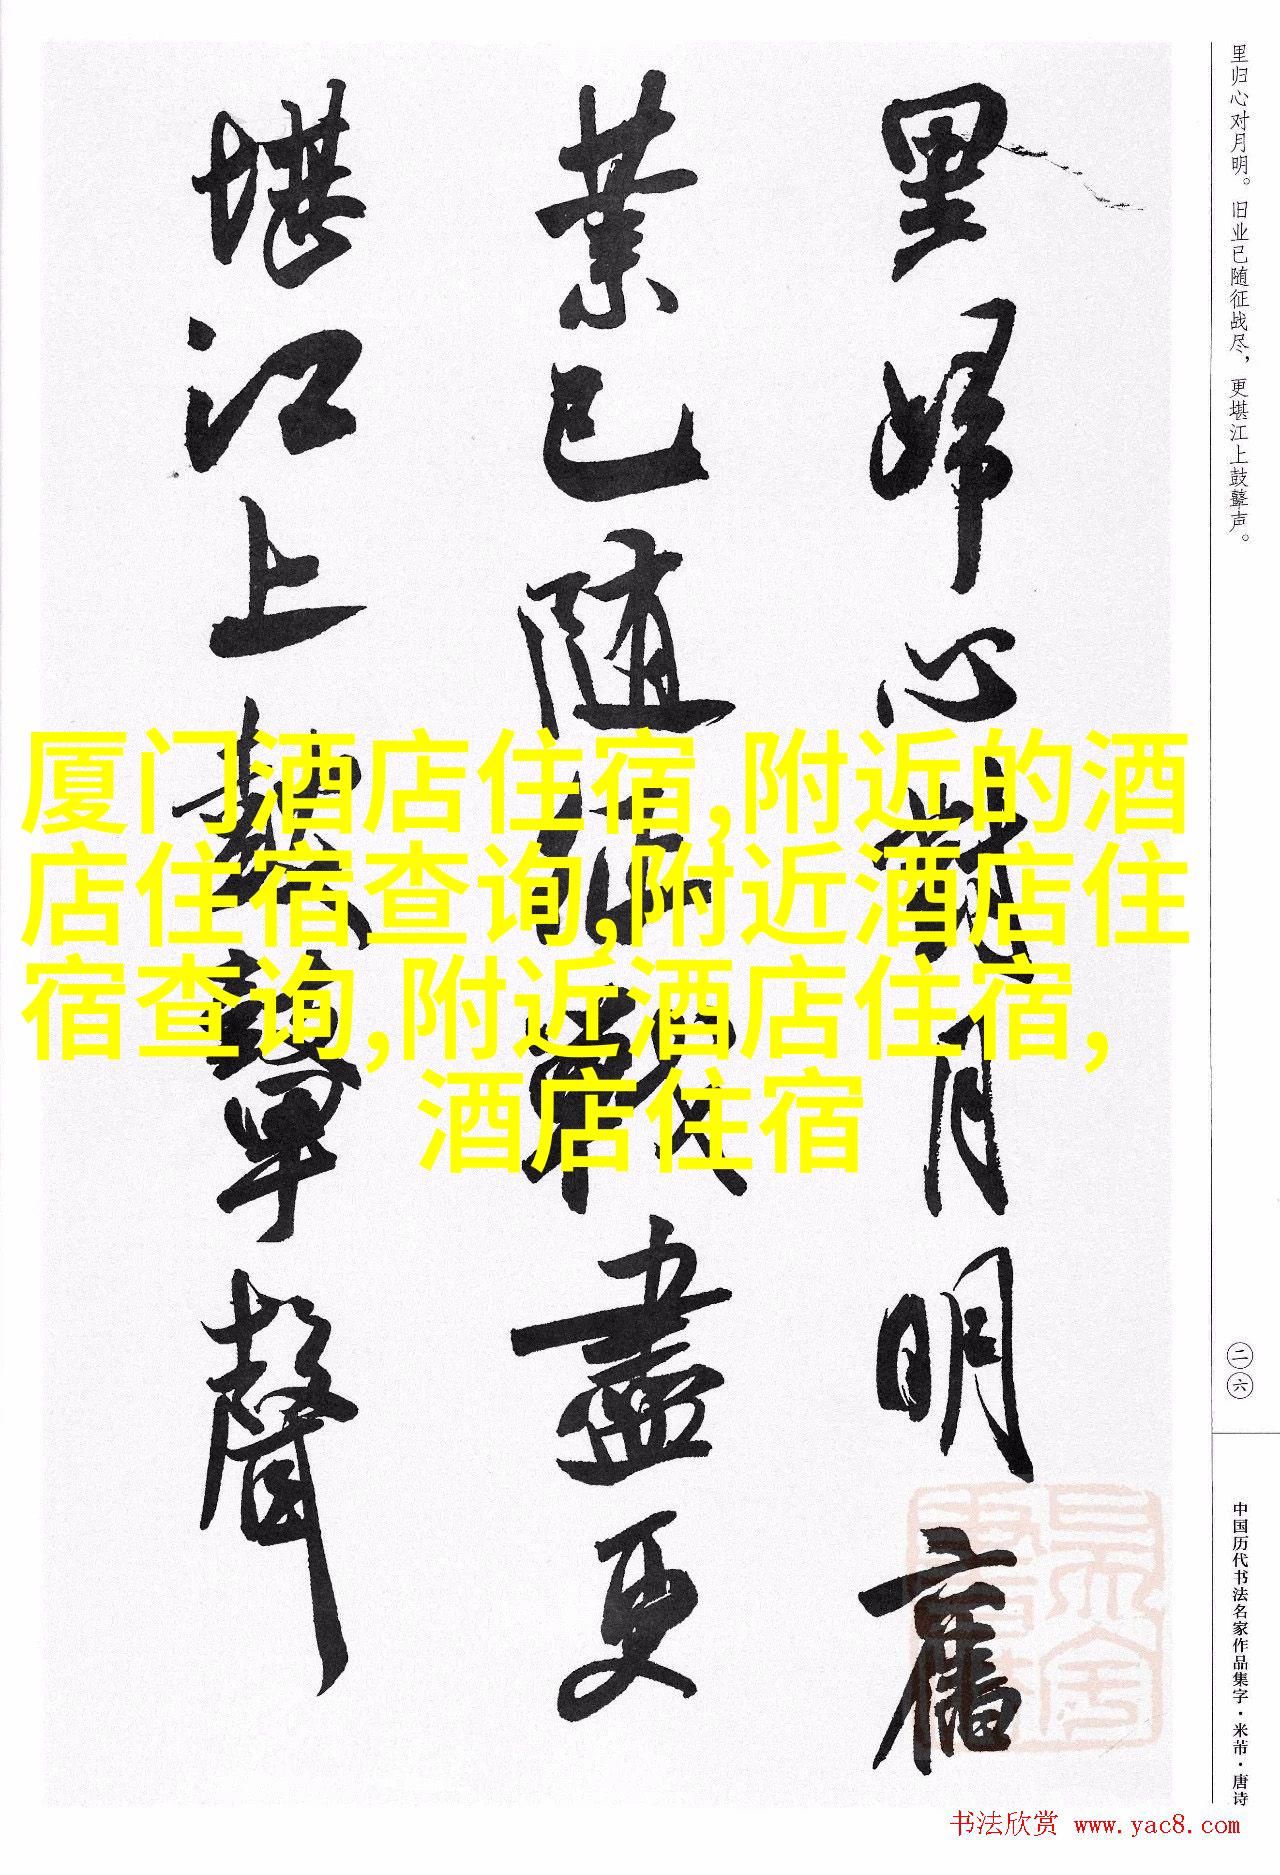 里归心对月明。旧业已随征战尽，更堪江上鼓鼙声。
里歸心對月明舊
業已隨征戰盡更
堪江上鼓鼙聲
厦门酒店住宿,附近的酒
店住宿查询,附近酒店住
宿查询,附近酒店住宿,
酒店住宿
二六
中国历代书法名家作品集字·米芾·唐诗
书法欣赏 www.yac8.com